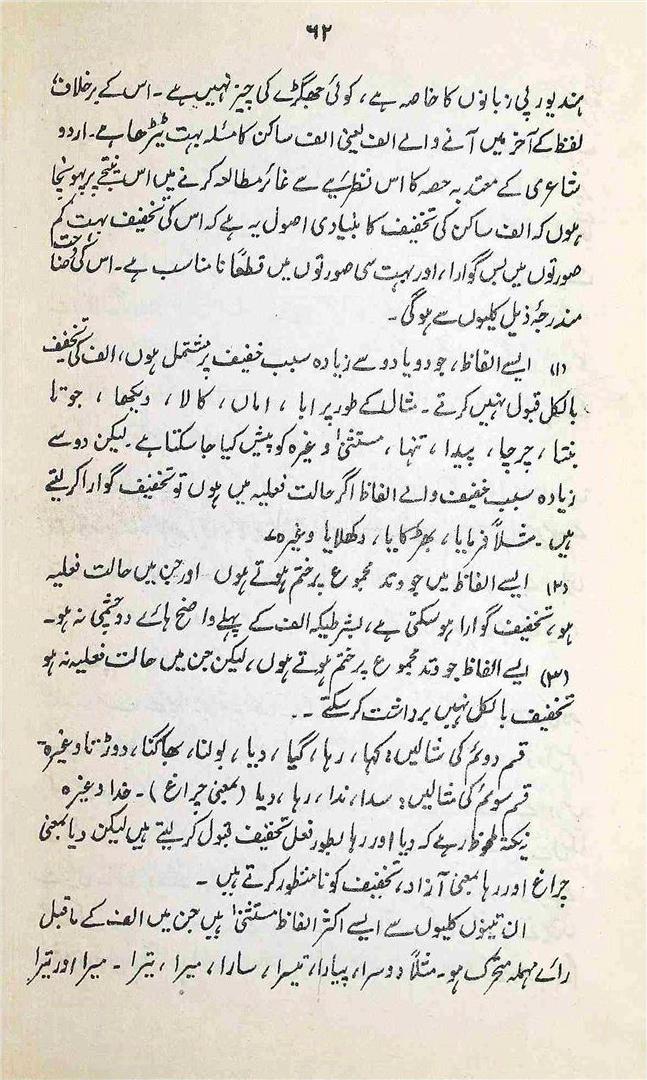 ۶۲
ہند یورپی زبانوں کا خاصہ ہے، کوئی جھگڑے کی چیز نہیں ہے۔ اس کے برخلاف
لفظ کے آخر میں آنے والے الف یعنی الف ساکن کا مسئلہ بہت ٹیڑھا ہے۔ اردو
شاعری کے معتدبہ حصہ کا اس نظریے سے غائر مطالعہ کرنے میں اس نتیجے پر پہونچا
ہوں کہ الف ساکن کی تخفیف کا بنیادی اصول یہ ہے کہ اس کی تخفیف بہت کم
صورتوں میں بس گوارا، اور بہت سی صورتوں میں قطعاً نامناسب ہے۔ اس کی وضاحت
مندرجۂ ذیل کلیوں سے ہوگی۔
(۱) ایسے الفاظ، جو دو یا دو سے زیادہ سبب خفیف پر مشتمل ہوں، الف کی تخفیف
بالکل قبول نہیں کرتے۔ مثال کے طور پر ابا، اماں، کالا، دیکھا، جوتا
بنتا، چرچا، پیدا، تنہا، مستثنیٰ وغیرہ کو پیش کیا جا سکتا ہے۔ لیکن دو سے
زیادہ سبب خفیف والے الفاظ اگر حالت فعلیہ میں ہوں تو تخفیف گوارا کر لیتے
ہیں۔ مثلاً فرمایا، بھڑکایا، دکھلایا وغیرہ۔
(۲) ایسے الفاظ میں جو وتد مجموع پر ختم ہوتے ہوں اور جن میں حالت فعلیہ
ہو، تخفیف گوارا ہو سکتی ہے، بشرطیکہ الف کے پہلے واضح ہائے دو چشمی نہ ہو۔
(۳) ایسے الفاظ جو وتد مجموع پر ختم ہوتے ہوں، لیکن جن میں حالت فعلیہ نہ ہو
تخفیف بالکل نہیں برداشت کر سکتے۔۔
قسم دوئم کی مثالیں: کہا، رہا، گیا، دیا، بولنا، بھاگنا، دوڑتا وغیرہ
قسم سوئم کی مثالیں: سدا، ندا، رہا، دیا (بمعنی چراغ)۔ خدا وغیرہ
یہ نکتہ ملحوظ رہے کہ دیا اور رہا بطور فعل تخفیف قبول کر لیتے ہیں لیکن دیا بمعنی
چراغ اور رہا بمعنی آزاد، تخفیف کو نامنظور کرتے ہیں۔
ان تینوں کلیوں سے ایسے اکثر الفاظ مستثنیٰ ہیں جن میں الف کے ماقبل
رائے مہملہ متحرک ہو۔ مثلاً دوسرا، پیارا، تیسرا، سارا، میرا، تیرا۔ میرا اور تیرا